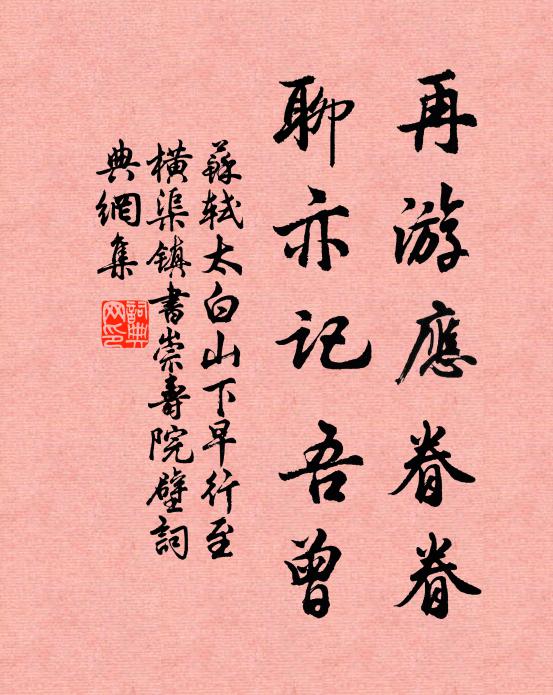 再游應眷眷
聊亦記吾曾
蘇軾太白山下早行至
橫渠鎮書崇壽院壁詞
典網集
詞典
网印